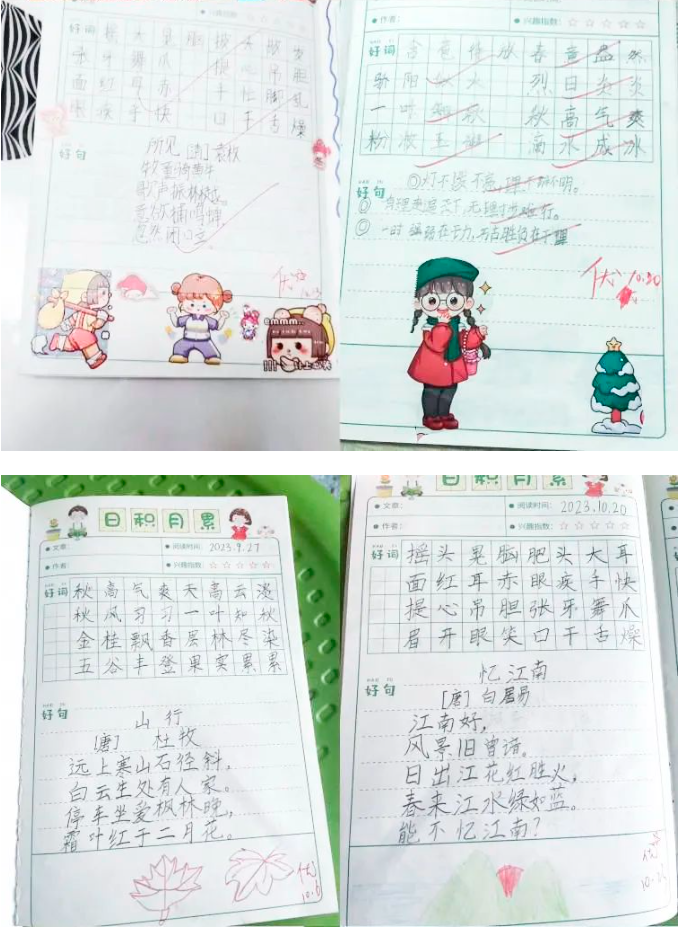 兴趣指数：
好词 摇 大 晃 脑 披 头
牙 舞 爪
面 红 耳 赤 手 忙 脚 乱
眼 疾 手 快 口 干 舌 燥
好句
所见 [清] 袁枚
牧童骑黄牛
歌声振林樾
意欲捕鸣蝉
忽然闭口立
优
ammmm..
作者：
兴趣指数：
好词 春 意 盎 然
骄 阳 似 火 烈 日 炎 炎
一 叶 知 秋 秋 高 气 爽
粉 妆 玉 砌 滴 水 成 冰
好句
①灯不拨不亮，理不辩不明。
有理走遍天下，无理寸步难行。
一时强弱在于力，万古胜负在于理
优 10.30
日积月累
文章：
阅读时间： 2023.9.27
作者
兴趣指数：
好词 秋 高 气 爽 天 高 云 淡
秋 风 习 习 一 叶 知 秋
金 桂 飘 香 层 林 尽 染
五 谷 丰 登 果 实 累 累
好句
山 行
[唐] 杜牧
远上寒山石径斜，
白云生处有人家。
停车坐爱枫林晚，
霜叶红于二月花。
优
10.6
日积月累
文章：
阅读时间： 2023.10.20
作者：
兴趣指数：
好词 摇 头 晃 脑 肥 头 大 耳
面 红 耳 赤 眼 疾 手 快
提 心 吊 胆 张 牙 舞 爪
眉 开 眼 笑 口 干 舌 燥
好句
忆江南
[唐] 白居易
江南好，
风景旧曾谙。
日出江花红胜火，
春来江水绿如蓝。
能不忆江南？
优